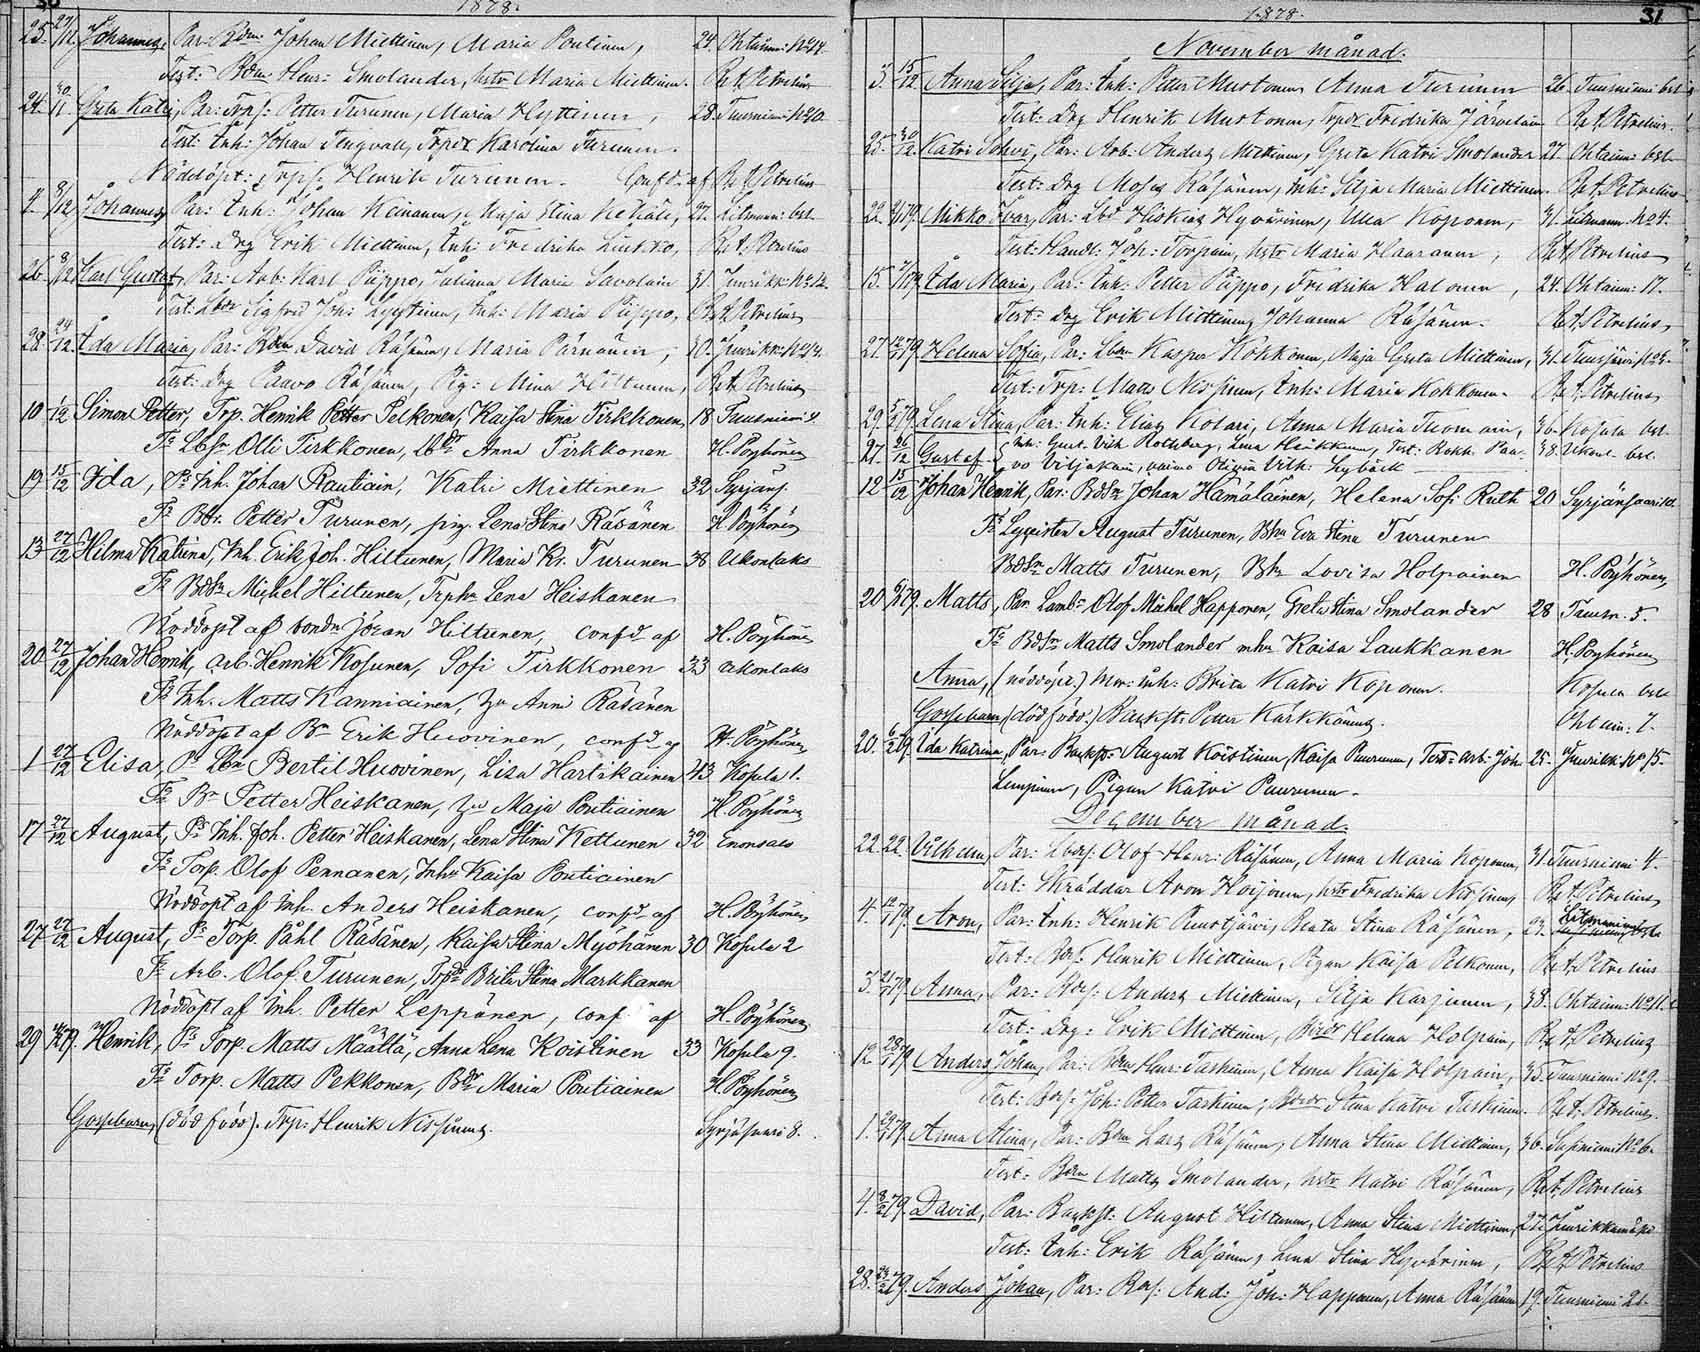 30
1878.
25. 27/11. Johannes, Par: Bdm: Johan Miettinen, Maria Poutiain, 24. Ohtaam: No 14.
Test: Bdm: Henr: Smolander, hstr Maria Miettinen. Rt A. Petrelius
24. 30/11 Greta Katri, Par: Trp: Petter Turunen, Maria Hyttinen, 28. Tuusniemi No 20.
Test: Inh: Johan Tengvall, Trpdr Karolina Turunen.
Nöddöpt: Trps: Henrik Turunen. Conf. af Rt A. Petrelius
7. 8/12 Johannes, Par: Inh: Johan Keinanen, Maja Stina Kekäle, 27. Litmani: bst.
Test: Drg Erik Miettinen, Inh: Fredrika Liukko, Rt A. Petrelius
26. 8/12 Karl Gustaf, Par: Arb: Karl Piippo, Juliana Maria Savolain 31. Juurikk: No 12.
Test: Lbdr Sigfred Joh: Lyytinen, Inh: Maria Piippo, Rt A. Petrelius
28. 24/12. Ida Maria, Par: Bdm David Räsänen, Maria Pärnänen, 30. Juurikk: No 14.
Test: Drg Paavo Räsänen, Pig: Mina Hiltunen, Rt A. Petrelius
10 1/12 Simon Petter, Trp. Henrik Petter Pelkonen, Kaisa Stina Tirkkonen 18 Tuusniemi 4.
Ts Lbsn Olli Tirkkonen, Lbdr Anna Tirkkonen H. Pöyhönen
19 15/12 Ida, Ps Inh. Johan Rautiain, Katri Miettinen 32 Syrjäns.
Ts Bdr. Petter Turunen, pig. Lena Stina Räsänen H. Pöyhönen
13 27/12 Hilma Katrina, Inh. Erik Joh. Hiltunen, Maria Kr. Turunen 38 Ukonlaks
Ts Bdsn Michel Hiltunen, Trphu Lena Heiskanen
Nöddöpt af bondn Jöran Hiltunen, confd. af H. Pöyhönen
20 27/12 Johan Henrik, Arb. Henrik Kosunen, Sofi Tirkkonen 33 Ukonlaks
Ts Inh. Matts Kanniainen, hu Anni Räsänen
Nöddöpt af Bn Erik Huovinen, confd af H. Pöyhönen
1 27/12 Elisa, Ps Lbn Bertil Huovinen, Lisa Hartikainen 43 Kosula 1.
Ts Bn Petter Heiskanen, hu Maja Poutiainen H. Pöyhönen
17 27/12 August, Ps Inh. Joh. Petter Heiskanen, Lena Stina Kettunen 32 Enonsalo
Ts Torp. Olof Pennanen, Inhu Kaisa Poutiainen
Nöddöpt af Inh. Anders Heiskanen, confd af H. Pöyhönen
27 27/12 August, Ps Torp. Påhl Räsänen, Kaisa Stina Myöhänen 30 Kosula 2
Ts Arb. Olof Turunen, Trpdr Brita Stina Markkanen
Nöddöpt af Inh. Petter Leppänen, conf af H. Pöyhönen
29 79. Henrik, Ps Torp. Matts Määttä, Anna Lena Koistinen 33 Kosula 9.
Ts Torp. Matts Pekkonen, Bdr Maria Poutiainen H. Pöyhönen
Gossebarn, (död född). Trp: Henrik Nissinens. Syrjäsaari 8.
1878.
31
November månad.
3. 15/12 Anna Silja, Par: Inh: Petter Mustonen, Anna Turunen 26. Tuusniemi bst
Test: Drg Henrik Mustonen, Trpdr Fredrika Järvelain Rt A. Petrelius.
25. 30/12. Katri Sohvi, Par: Arb: Anders Miettinen, Greta Katri Smolander 27. Ohtaam: bst.
Test: Drg Moses Räsänen, Inh: Silja Maria Miettinen. Rt A. Petrelius
22. /79. Mikko Ivar, Par: Lbd Hiskias Hyvärinen, Ulla Koponen, 31. Litmani: No 4.
Test: Handl: Joh: Torpain, hstr Maria Haaranen, Rt A. Petrelius
15. /79. Ida Maria, Par: Inh: Petter Piippo, Fredrika Halonen, 24. Ohtaam: 17.
Test: Drg Erik Miettinen, Johanna Räsänen. Rt A. Petrelius
27. 12/79. Helena Sofia, Par: Lbdn Kasper Kokkonen, Maja Greta Miettinen, 31. Tuusjärvi No 3.
Test: Trp: Matts Nissinen, Inh: Maria Kokkonen. Rt A. Petrelius
29. /79. Lena Stina, Par: Inh: Elias Kolari, Anna Maria Thomain, 36. Kosula bst.
27. 26/12 Gustaf. Inh: Gust. Vilh Rothberg, Lena Heikkinen, Test: Rokk. Paa- 38. Ukonl. bst.
vo Viljakain, vaimo Olivia Vilh: Lybäck
12 15/12 Johan Henrik, Par: Bdsn Johan Hämäläinen, Helena Sofi Ruth 20 Syrjänsaari
Ts Lygristen August Turunen, Bhu Eva Stina Turunen
Bdsn Matts Turunen, Bhu Lovisa Holpainen H. Pöyhönen
20 6/79. Matts, Par. Lamb. Olof Michel Happonen, Greta Stina Smolander 28 Tuusn. 5.
Ts Bdsn Matts Smolander mhu Kaisa Laukkanen H. Pöyhönen
Anna, (nöddöpt.) mor: inh: Brita Katri Koponen. Kosula bst
Gossebarn, (död född.) Backst. Petter Kärkkäinens. Ohtaam: 7.
20. /79. Ida Katrina, Par: Backst: August Koistinen, Kaisa Puurunen, Test: arb: Joh: 25. Juurikk: No 15.
Lempinen, Pigan Katri Puurunen.
December månad.
22. 22. Vilhelm, Par: Lbdsn: Olof Henr: Räsänen, Anna Maria Koponen, 31. Tuusniemi 4.
Test: Skräddar Aron Hoijonen, hstr Fredrika Nissinen, Rt A. Petrelius
4. 12/79. Aron, Par: Inh: Henrik Puustjärvi, Beata Stina Räsänen, 23. Litmaniemi bst.
Test: Bdsn: Henrik Miettinen, Pigan Kaisa Pelkonen, Rt A. Petrelius
3. 21/79. Anna, Par: Bdsn: Anders Miettinen, Silja Karjunen, 38. Ohtaam: No 11.
Test: Drg: Erik Miettinen, Bdsdr Helena Holpain, Rt A. Petrelius
12 28/79 Anders Johan, Par: Bdm Henr: Taskinen, Anna Kaisa Holpain, 35. Tuusniemi No 9.
Test: Bdsn: Joh: Petter Taskinen, Bdsdr Stina Katri Taskinen. Rt A. Petrelius.
1. 29/79. Anna Alina, Par: Bdm Lars Räsänen, Anna Stina Miettinen, 36. Susiniemi No 6.
Test: Bdm Matts Smolander, hstr Katri Räsänen, Rt A. Petrelius
4. 8/79. David, Par: Backst: August Hiltunen, Anna Stina Miettinen, 27. Juurikkamäki
Test: Inh: Erik Räsänen, Lena Stina Hyvärinen, Rt A. Petrelius
28. 23/79. Anders Johan, Par: Bdsn: And: Joh: Happonen, Anna Räsänen 19. Tuusniemi 21.